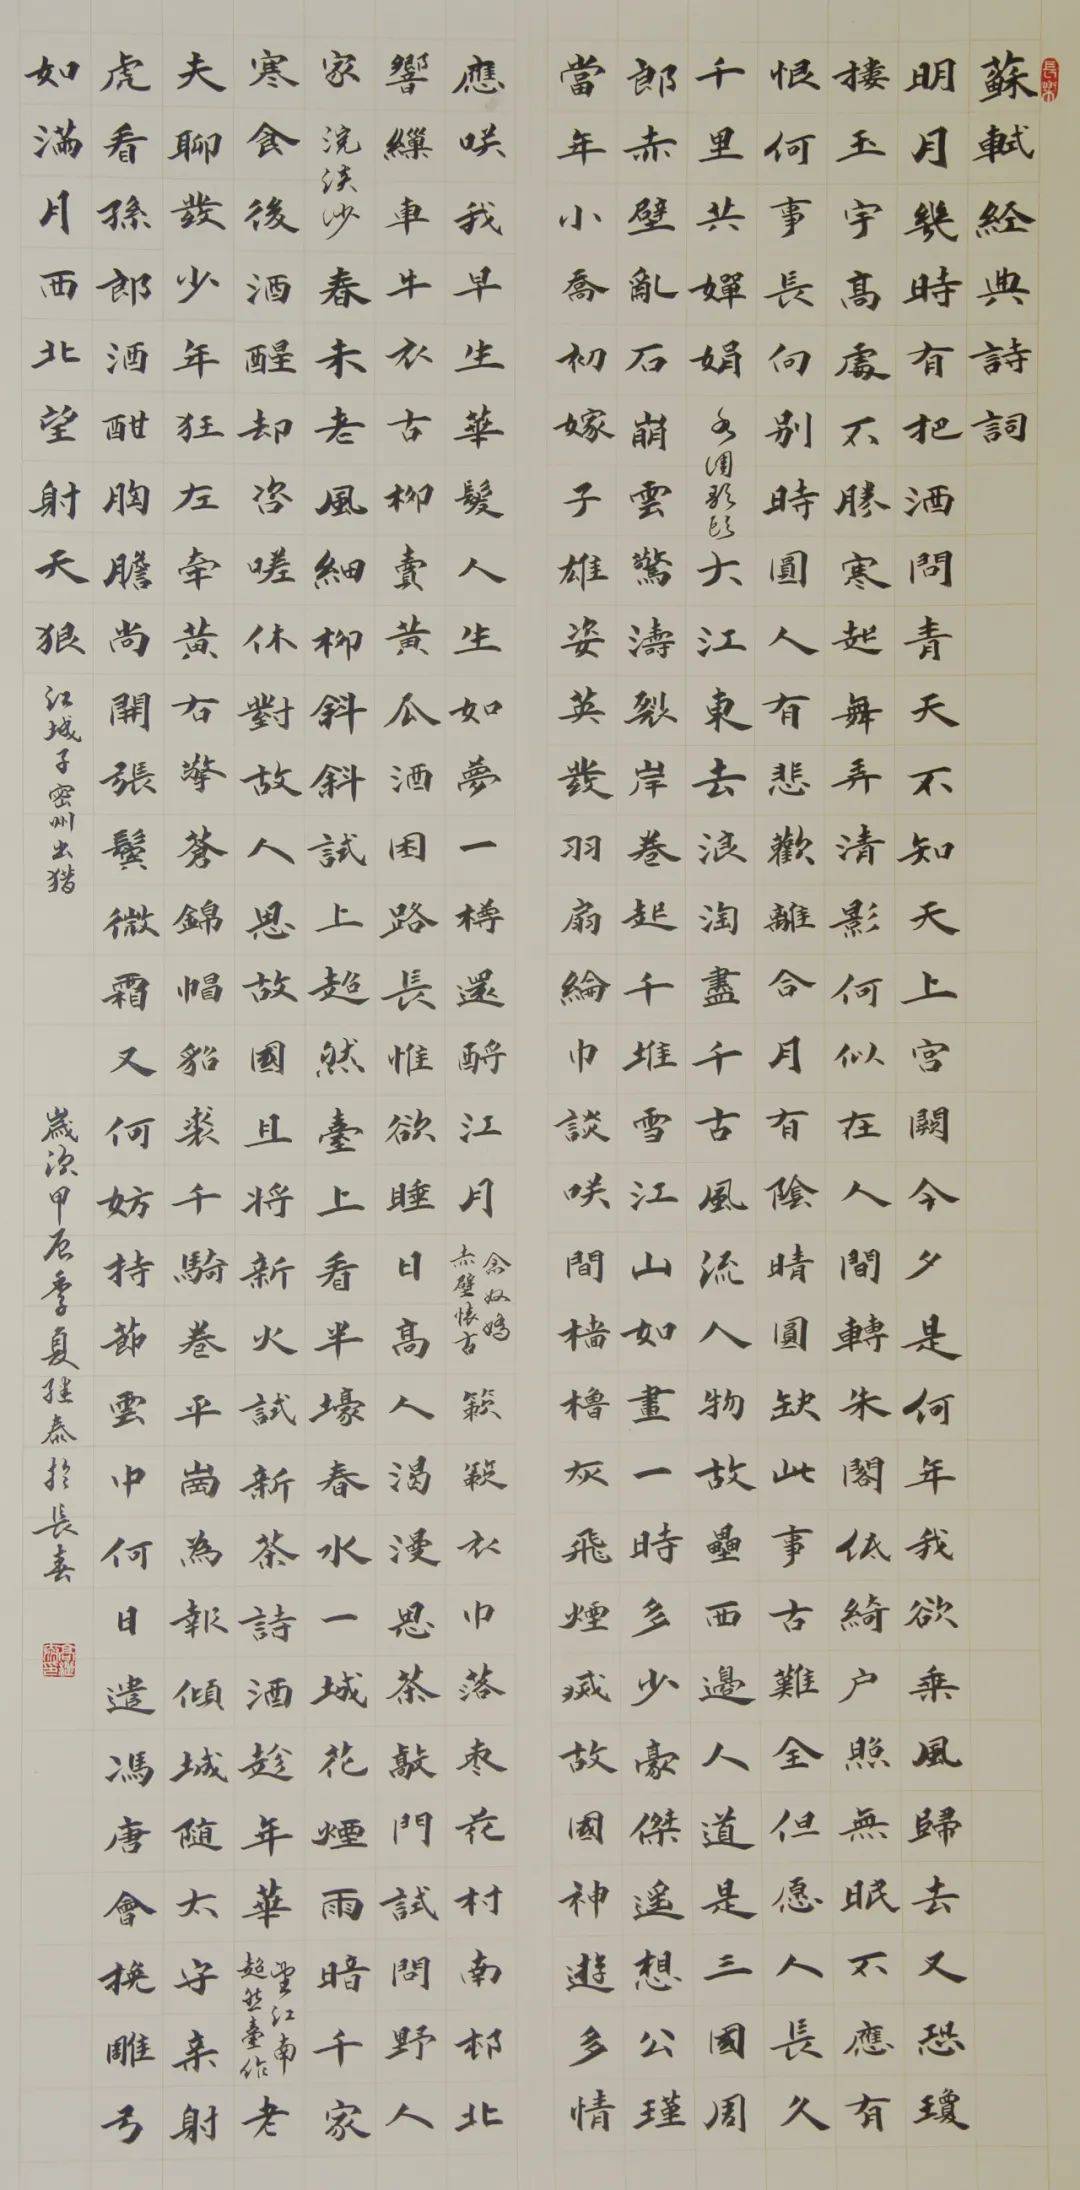 長樂
蘇軾经典詩詞
明月幾時有把酒問青天不知天上宮闕今夕是何年我欲乘風歸去又恐瓊
樓玉宇高處不勝寒起舞弄清影何似在人間轉朱閣低綺户照無眠不應有
恨何事長向别時圓人有悲歡離合月有陰晴圓缺此事古難全但愿人長久
千里共嬋娟 水调歌頭 大江東去浪淘盡千古風流人物故壘西邊人道是三國周
郎赤壁亂石崩雲驚濤裂岸卷起千堆雪江山如畫一時多少豪傑遥想公瑾
當年小喬初嫁子雄姿英發羽扇綸巾談咲間檣櫓灰飛煙滅故國神遊多情
應咲我早生華髮人生如夢一樽還酹江月 念奴嬌赤壁懷古 簌簌衣巾落枣花村南邨北
響繅車牛衣古柳賣黄瓜酒困路長惟欲睡日高人渴漫思茶敲門試問野人
家 浣溪沙 春未老風細柳斜斜試上超然臺上看半壕春水一城花煙雨暗千家
寒食後酒醒却咨嗟休對故人思故國且将新火試新茶詩酒趁年華 望江南超然臺作 老
夫聊發少年狂左牽黄右擎蒼錦帽貂裘千騎卷平崗為報傾城随太守亲射
虎看孫郎酒酣胸膽尚開張鬢微霜又何妨持節雲中何日遣馮唐會挽雕弓
如滿月西北望射天狼 江城子密州出猎
歲次甲辰季夏继泰於長春